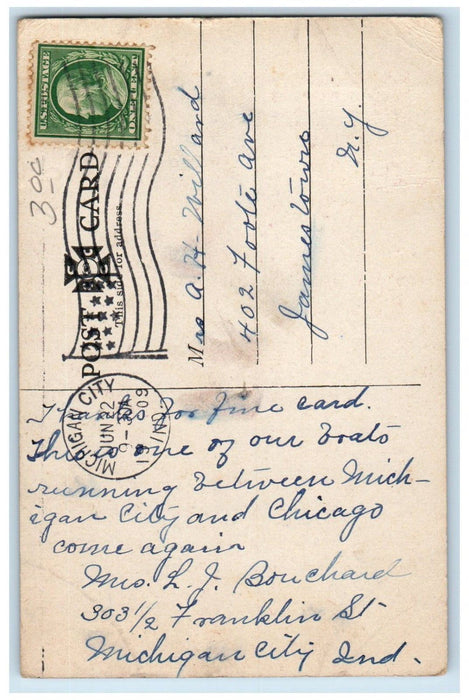 U.S. POSTAGE
ONE CENT
3 00
POST CARD
This side for address.
Mrs A. H. Willard
402 Foote Ave
Jamestown
N. Y.
MICHIGAN CITY
JUN 22
9-30A
1909
IND.
Thanks for fine card.
This is one of our boats
running between Mich-
igan City and Chicago
come again
Mrs. L. J. Bouchard
303 1/2 Franklin St-
Michigan City Ind.